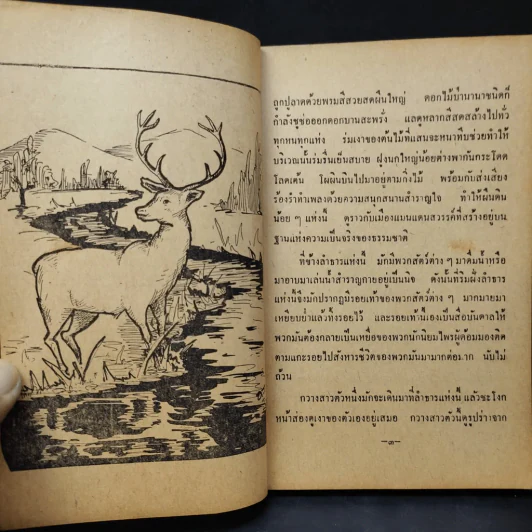 ถูกปูลาดด้วยพรมสีสวยสดผืนใหญ่ ดอกไม้ป่านานาชนิดก็
กำลังชูช่อออกดอกบานสะพรั่ง แลดูหลากสีสดสล้างไปทั่ว
ทุกหนทุกแห่ง ร่มเงาของต้นไม้ที่แสนจะหนาทึบช่วยทำให้
บริเวณนั้นร่มรื่นเย็นสบาย ฝูงนกใหญ่น้อยต่างพากันกระโดด
โลดเต้น โผผินบินไปมาอยู่ตามกิ่งไม้ พร้อมกับส่งเสียง
ร้องรำทำเพลงด้วยความสนุกสนานสำราญใจ ทำให้ผืนดิน
น้อย ๆ แห่งนี้ ดูราวกับเมืองแมนแดนสวรรค์ที่สร้างอยู่บน
ฐานแห่งความเป็นจริงของธรรมชาติ
ที่ข้างลำธารแห่งนี้ มักมีพวกสัตว์ต่าง ๆ มาดื่มน้ำหรือ
มาอาบมาเล่นน้ำสำราญกายอยู่เป็นนิจ ดังนั้นที่ริมฝั่งลำธาร
แห่งนี้จึงมักปรากฏมีรอยเท้าของพวกสัตว์ต่าง ๆ มากมายมา
เหยียบย่ำแล้วทิ้งรอยไว้ และรอยเท้านี้เองเป็นสื่อบันดาลให้
พวกมันต้องกลายเป็นเหยื่อของพวกนักนิยมไพรผู้ด้อมมองติด
ตามแกะรอยไปสังหารชีวิตของพวกมันมามากต่อมาก นับไม่
ถ้วน
กวางสาวตัวหนึ่งมักจะเดินมาที่ลำธารแห่งนี้ แล้วชะโงก
หน้าส่องดูเงาของตัวเองอยู่เสมอ กวางสาวตัวนี้ดูรูปร่างจาก
–๓–